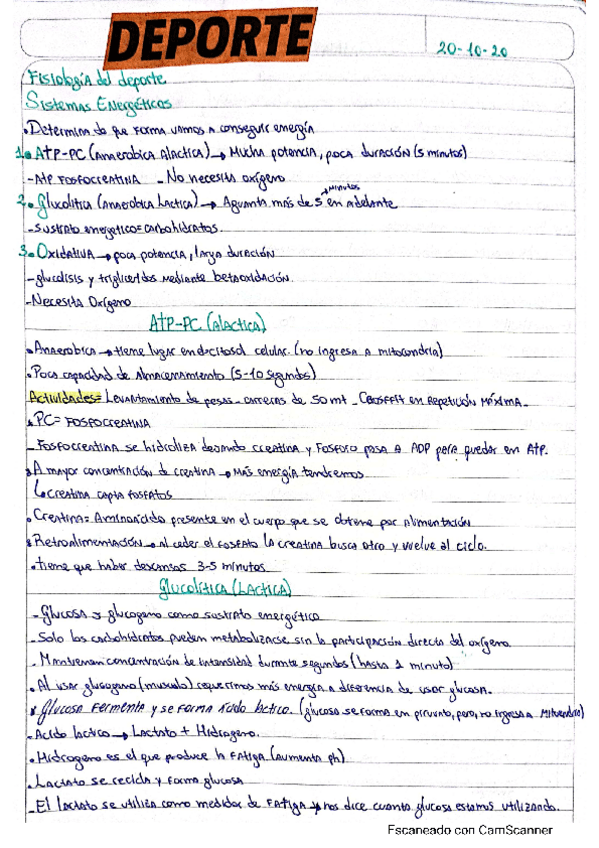 DEPORTE
20-10-20
Fisiología del deporte
Sistemas Energéticos
• Determina de que forma vamos a conseguir energía
1. ATP-PC (Anaerobica Alactica) → Mucha potencia, poca duración (5 minutos)
- ATP Fosfocreatina - No necesita oxígeno
2. Glucolitica (Anaerobica Lactica) → Aguanta más de 5 minutos en adelante
- Sustrato energetico = carbohidratos
3. Oxidativa → poca potencia, larga duración
- glucolisis y trigliceridos mediante betaoxidación.
- Necesita Oxígeno
ATP-PC (Alactica)
• Anaerobica → tiene lugar en el citosol celular. (no ingresa a mitocondria)
• Poca capacidad de almacenamiento (5-10 segundos)
Actividades = Levantamiento de pesas - carreras de 50 mt - Crossfit en Repetición Máxima.
• PC = Fosfocreatina
- Fosfocreatina se hidroliza dejando creatina y Fosforo pasa a ADP para quedar en ATP.
• A mayor concentración de creatina → más energía tendremos
↳ creatina capta fosfatos
• Creatina = Aminoácido presente en el cuerpo que se obtiene por alimentación
• Retroalimentación → al ceder el fosfato la creatina busca otro y vuelve al ciclo.
• tiene que haber descansos 3-5 minutos
Glucolítica (Lactica)
- Glucosa y glucogeno como sustrato energético
- Solo los carbohidratos pueden metabolizarse sin la participación directa del oxígeno
- Mantienen concentración de intensidad durante segundos (hasta 1 minuto)
• Al usar glusogeno (musculo) requerimos más energía a diferencia de usar glucosa.
* Glucosa Fermenta y se forma Ácido lactico. (glucosa se forma en piruvato, pero, no ingresa a Mitocondria)
- Acido lactico → Lactato + Hidrogeno.
• Hidrogeno es el que produce la Fatiga (aumenta ph)
• Lactato se recicla y forma glucosa
- El lactato se utiliza como medidor de Fatiga → nos dice cuanta glucosa estamos utilizando.
Escaneado con CamScanner